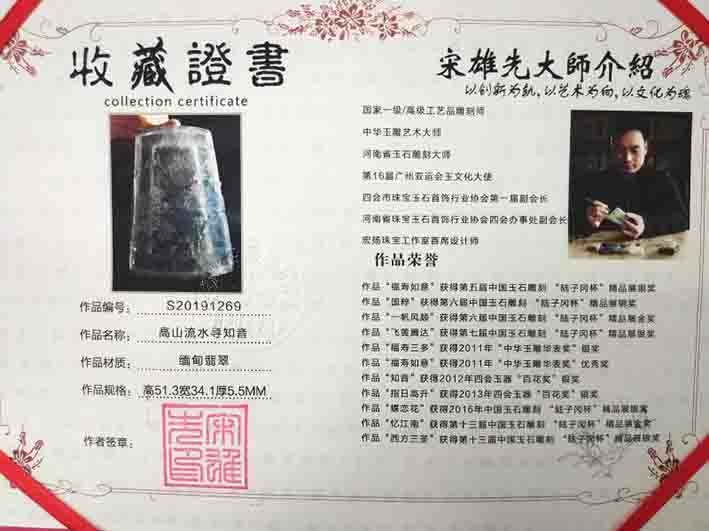 收藏證書
collection certificate
作品编号: S20191269
作品名称: 高山流水寻知音
作品材质: 缅甸翡翠
作品规格: 高51.3宽34.1厚5.5MM
作者签章:
宋雄先印
宋雄先大師介紹
以创新为轨,以艺术为向,以文化为魂
国家一级/高级工艺品雕刻师
中华玉雕艺术大师
河南省玉石雕刻大师
第16届广州亚运会玉文化大使
四会市珠宝玉石首饰行业协会第一届副会长
河南省珠宝玉石首饰行业协会四会办事处副会长
宏扬珠宝工作室首席设计师
作品荣誉
作品“福寿如意”获得第五届中国玉石雕刻 “陆子冈杯”精品展银奖
作品“国粹”获得第六届中国玉石雕刻 “陆子冈杯”精品展铜奖
作品“一帆风顺”获得第六届中国玉石雕刻 “陆子冈杯”精品展金奖
作品“飞黄腾达”获得第七届中国玉石雕刻 “陆子冈杯”精品展铜奖
作品“福寿三多”获得2011年“中华玉雕华表奖”银奖
作品“福寿如意”获得2011年“中华玉雕华表奖”优秀奖
作品“知音”获得2012年四会玉器“百花奖”银奖
作品“指日高升”获得2013年四会玉器“百花奖”铜奖
作品“蝶恋花”获得2016年中国玉石雕刻 “陆子冈杯”精品展银奖
作品“忆江南”获得第十三届中国玉石雕刻 “陆子冈杯”精品展金奖
作品“西方三圣”获得第十三届中国玉石雕刻 “陆子冈杯”精品展银奖